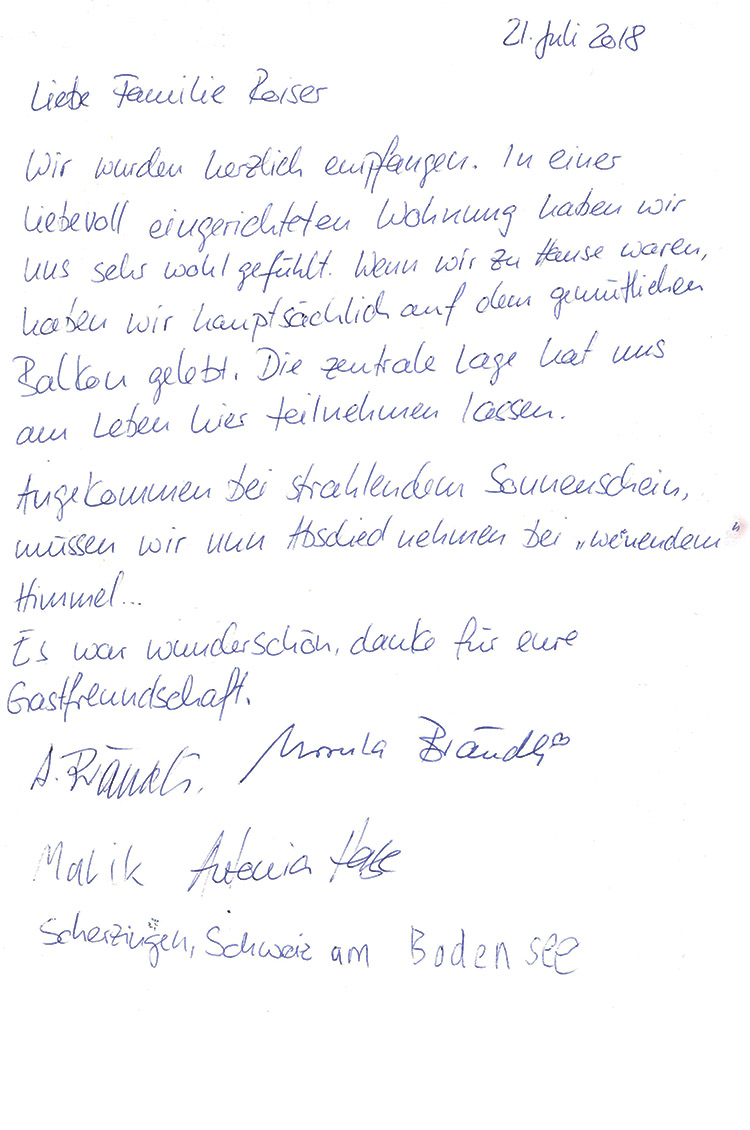 21. Juli 2018
Liebe Familie Raiser
Wir wurden herzlich empfangen. In einer
liebevoll eingerichteten Wohnung haben wir
uns sehr wohl gefühlt. Wenn wir zu Hause waren,
haben wir hauptsächlich auf dem gemütlichen
Balkon gelebt. Die zentrale Lage hat uns
am Leben hier teilnehmen lassen.
Angekommen bei strahlendem Sonnenschein,
müssen wir nun Abschied nehmen bei „weinendem"
Himmel...
Es war wunderschön, danke für eure
Gastfreundschaft.
A. Ursula
Malik Antonia
Scherzingen, Schweiz am Bodensee